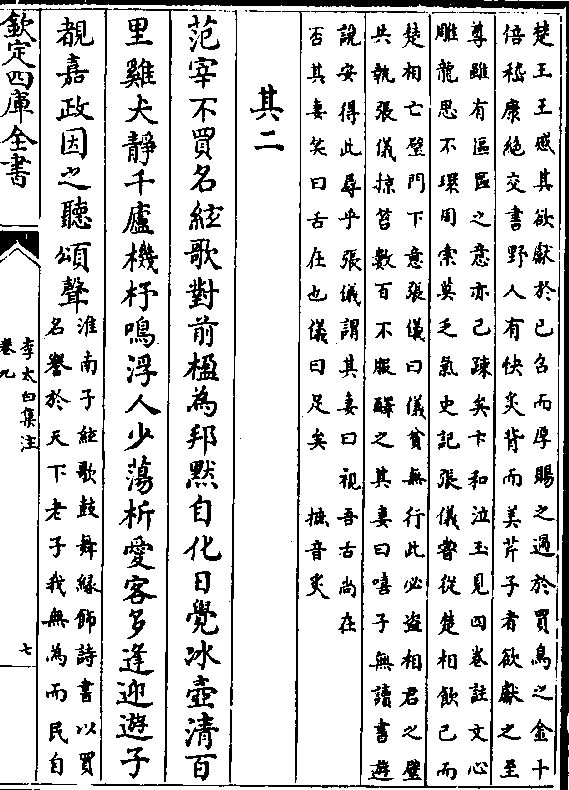 楚王王感其欲獻於己召而厚賜之過於買鳥之金十
倍嵇康絶交書野人有快炙背而美芹子者欲獻之至
尊雖有區區之意亦已疎矣卞和泣玉見四卷註文心
雕龍思不環周索莫乏氣史記張儀嘗從楚相飲已而
楚相亡璧門下意張儀曰儀貧無行此必盗相君之璧
共執張儀掠笞數百不服醳之其妻曰嘻子無讀書遊
說安得此辱乎張儀謂其妻曰視吾舌尚在
否其妻笑曰舌在也儀曰足矣　摭音炙
其二
范宰不買名絃歌對前楹為邦默自化日覺冰壺清百
里雞犬靜千廬機杼鳴浮人少蕩析愛客多逢迎遊子
覩嘉政因之聽頌聲
淮南子絃歌鼓舞緣飾詩書以買
名譽於天下老子我無為而民自
欽定四庫全書
李太白集注
卷九
七